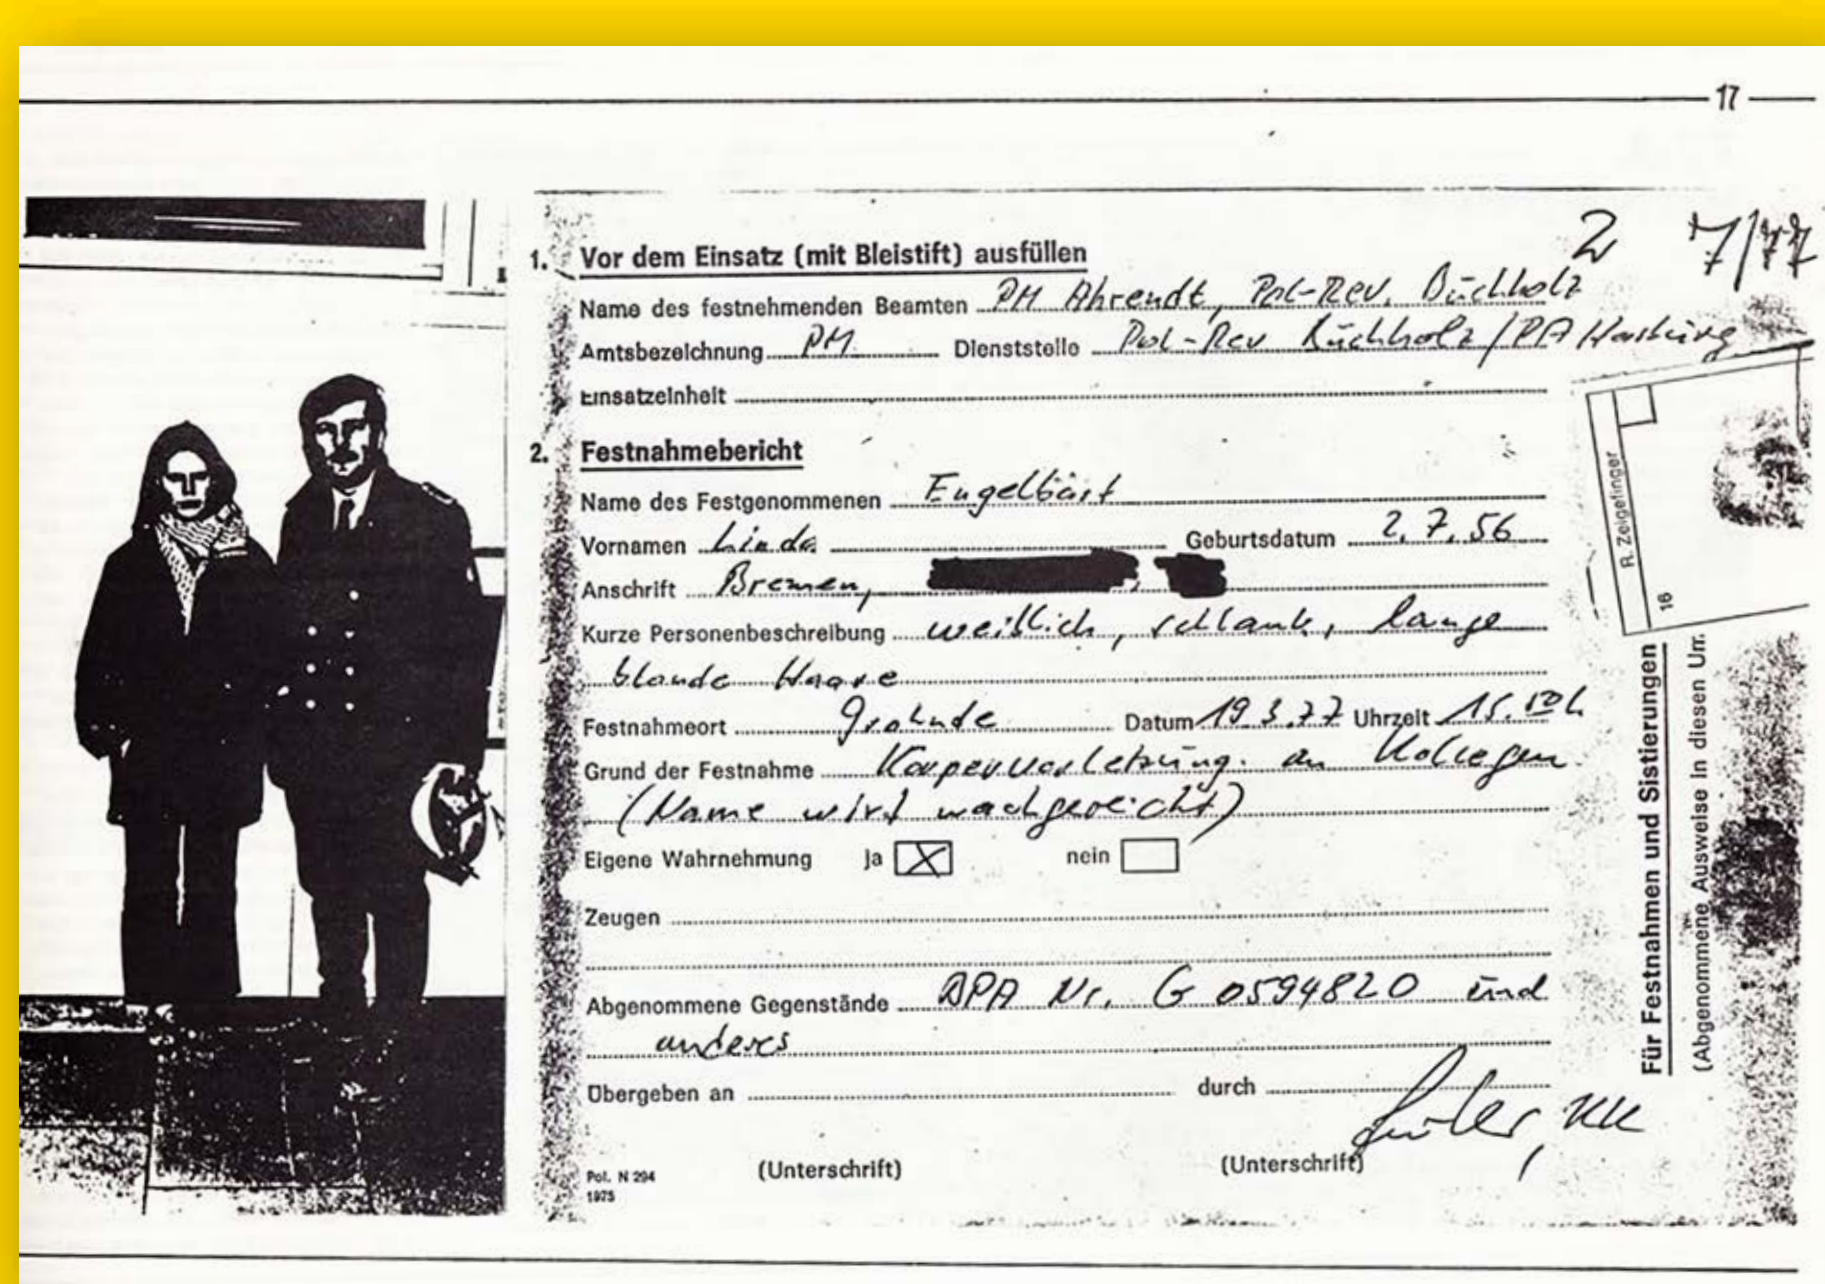 17
2 7/77
1. Vor dem Einsatz (mit Bleistift) ausfüllen
Name des festnehmenden Beamten PM Ahrendt, Pol-Rev. Buchholz
Amtsbezeichnung PM Dienststelle Pol-Rev Buchholz/PA Harburg
Einsatzeinheit
2. Festnahmebericht
Name des Festgenommenen
Vornamen Linda Geburtsdatum 2.7.56
Anschrift Bremen,
Kurze Personenbeschreibung weiblich, schlank, lange
blonde Haare
Festnahmeort Grohnde Datum 19.3.77 Uhrzeit 15.00h
Grund der Festnahme Körperverletzung an Kollegen
(Name wird nachgereicht)
Eigene Wahrnehmung ja X nein
Zeugen
Abgenommene Gegenstände BPA Nr. G 0594820 und
anderes
Übergeben an durch
KK
(Unterschrift) (Unterschrift)
Pol. N 294
1975
R. Zeigefinger
16
Für Festnahmen und Sistierungen
(Abgenommene Ausweise in diesen Um